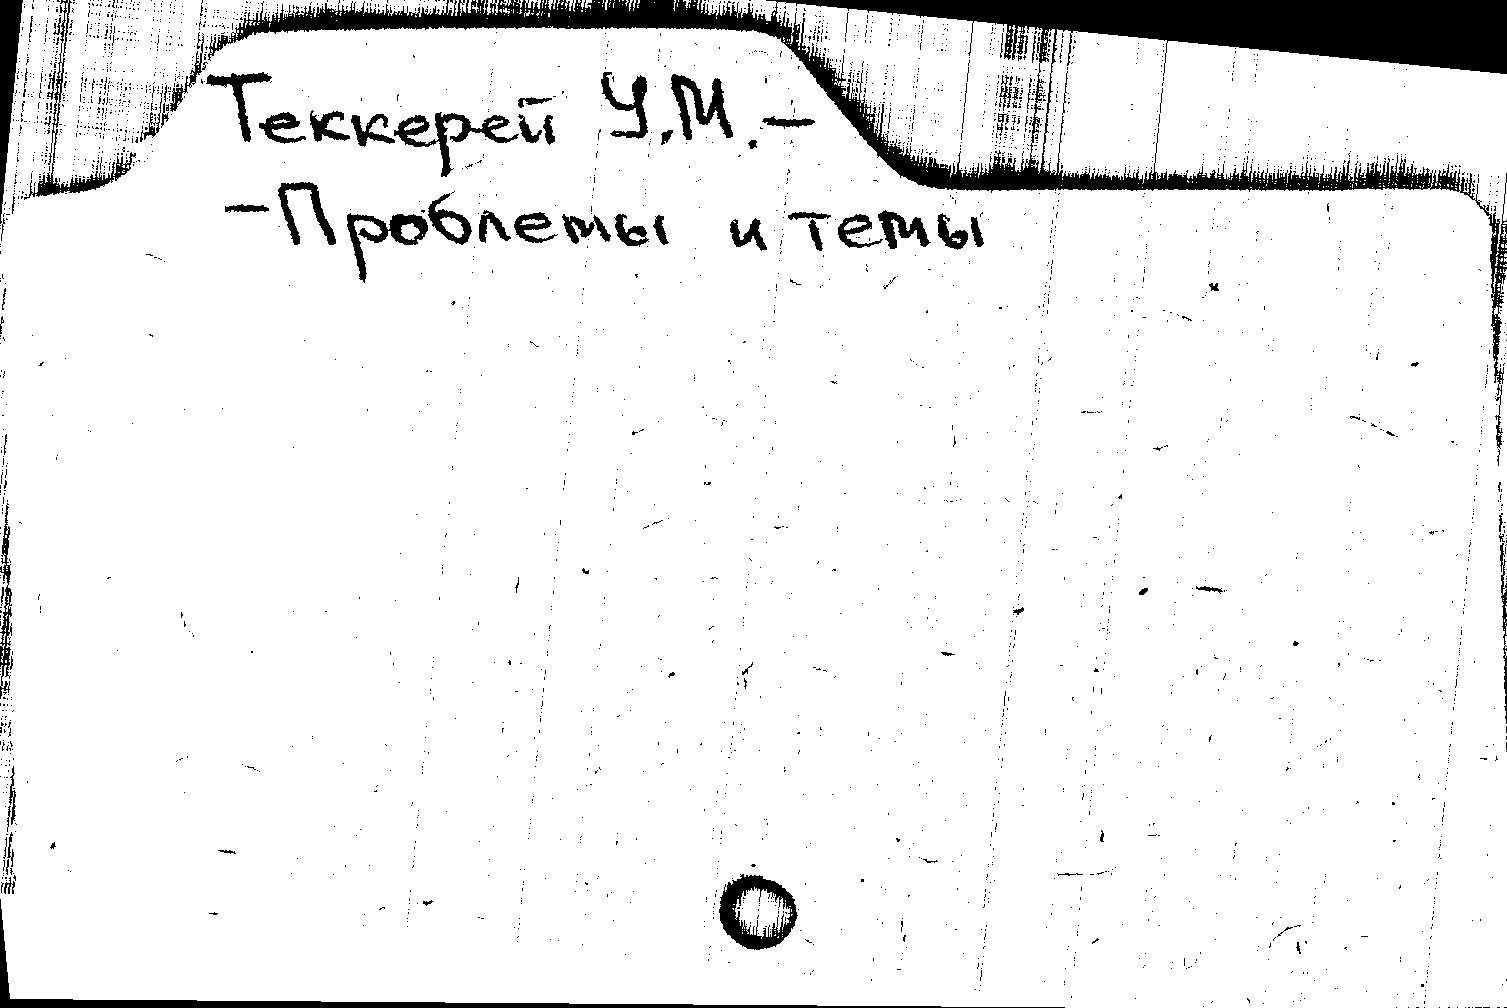 Теккерей У.М.-
-Проблемы и темы